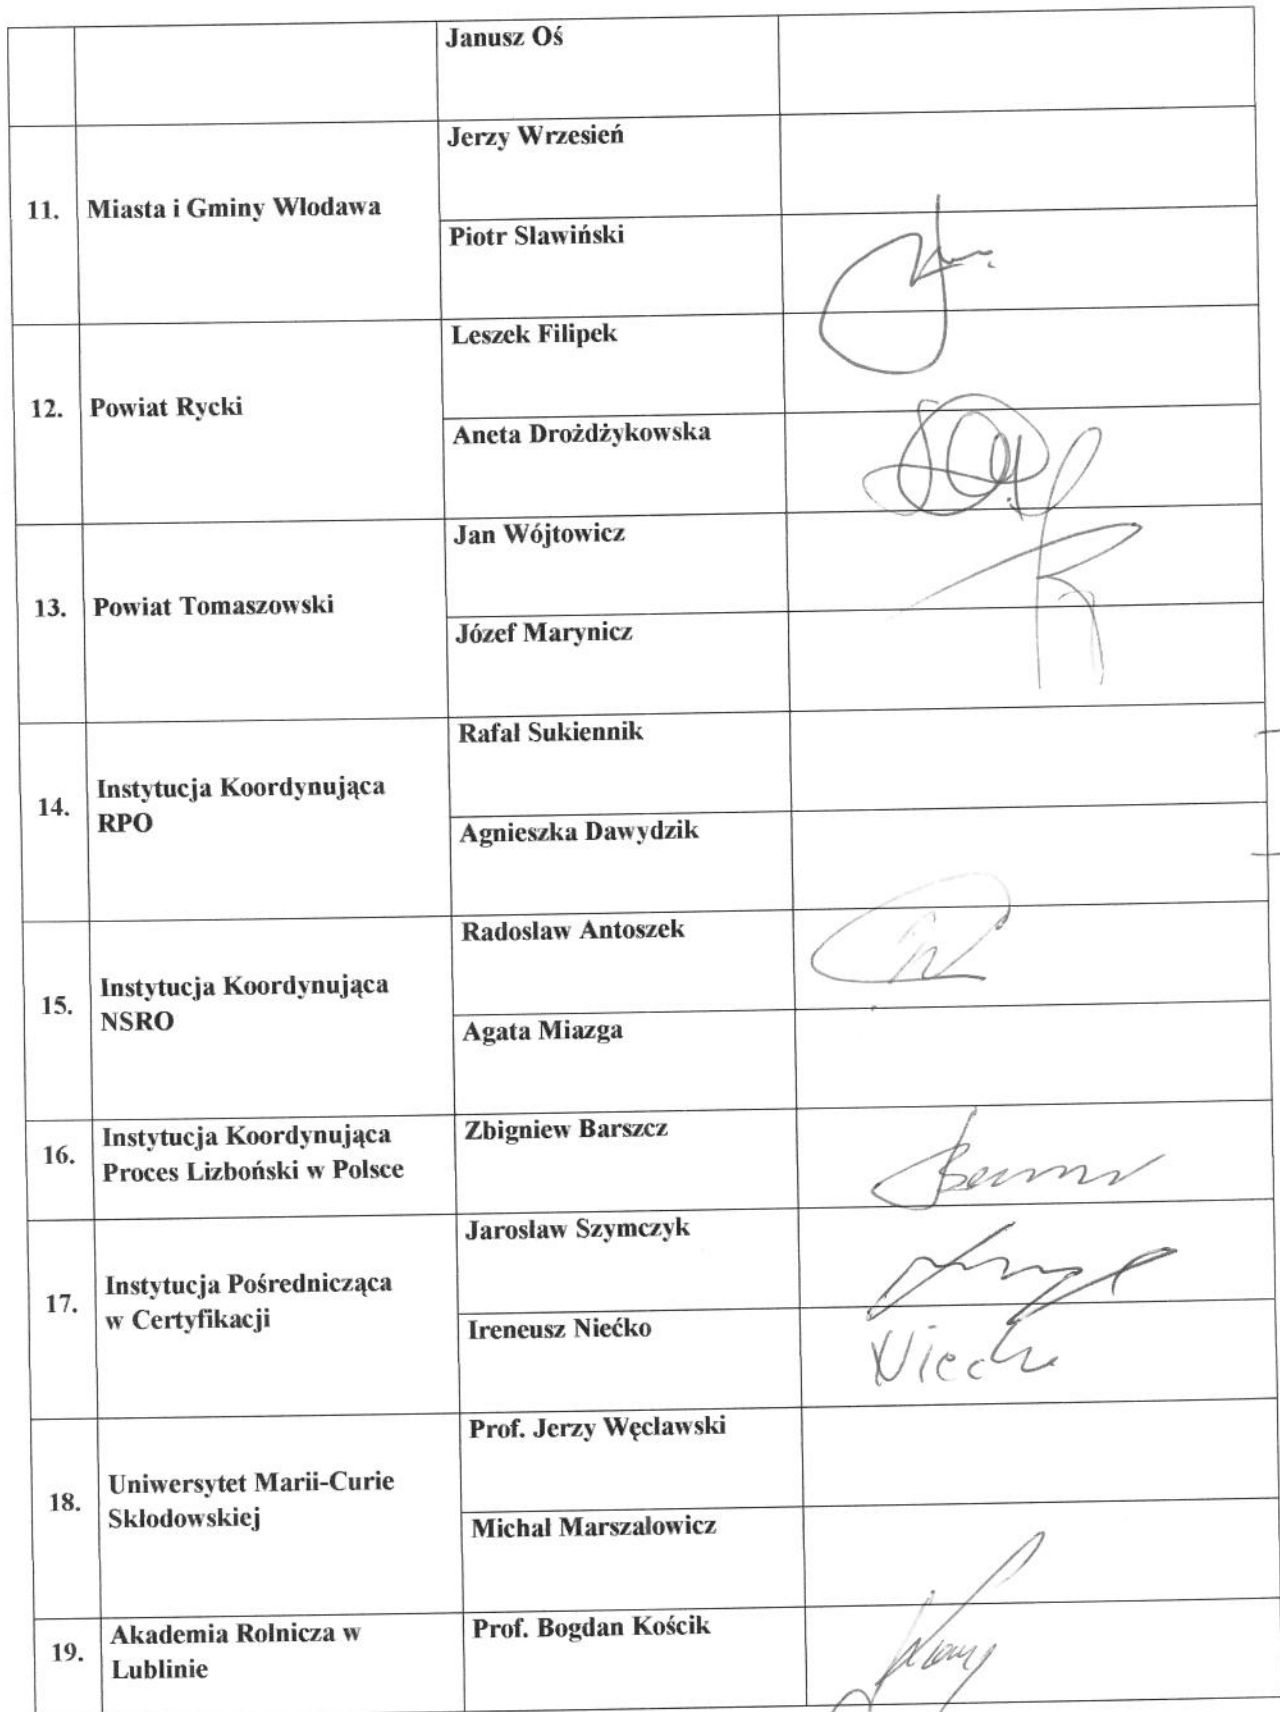 Janusz Oś
11. Miasta i Gminy Włodawa
Jerzy Wrzesień
Piotr Sławiński
12. Powiat Rycki
Leszek Filipek
Aneta Drożdżykowska
13. Powiat Tomaszowski
Jan Wójtowicz
Józef Marynicz
14. Instytucja Koordynująca
RPO
Rafał Sukiennik
Agnieszka Dawydzik
15. Instytucja Koordynująca
NSRO
Radosław Antoszek
Agata Miazga
16. Instytucja Koordynująca
Proces Lizboński w Polsce
Zbigniew Barszcz
17. Instytucja Pośrednicząca
w Certyfikacji
Jarosław Szymczyk
Ireneusz Niećko
18. Uniwersytet Marii-Curie
Skłodowskiej
Prof. Jerzy Węcławski
Michał Marszałowicz
19. Akademia Rolnicza w
Lublinie
Prof. Bogdan Kościk